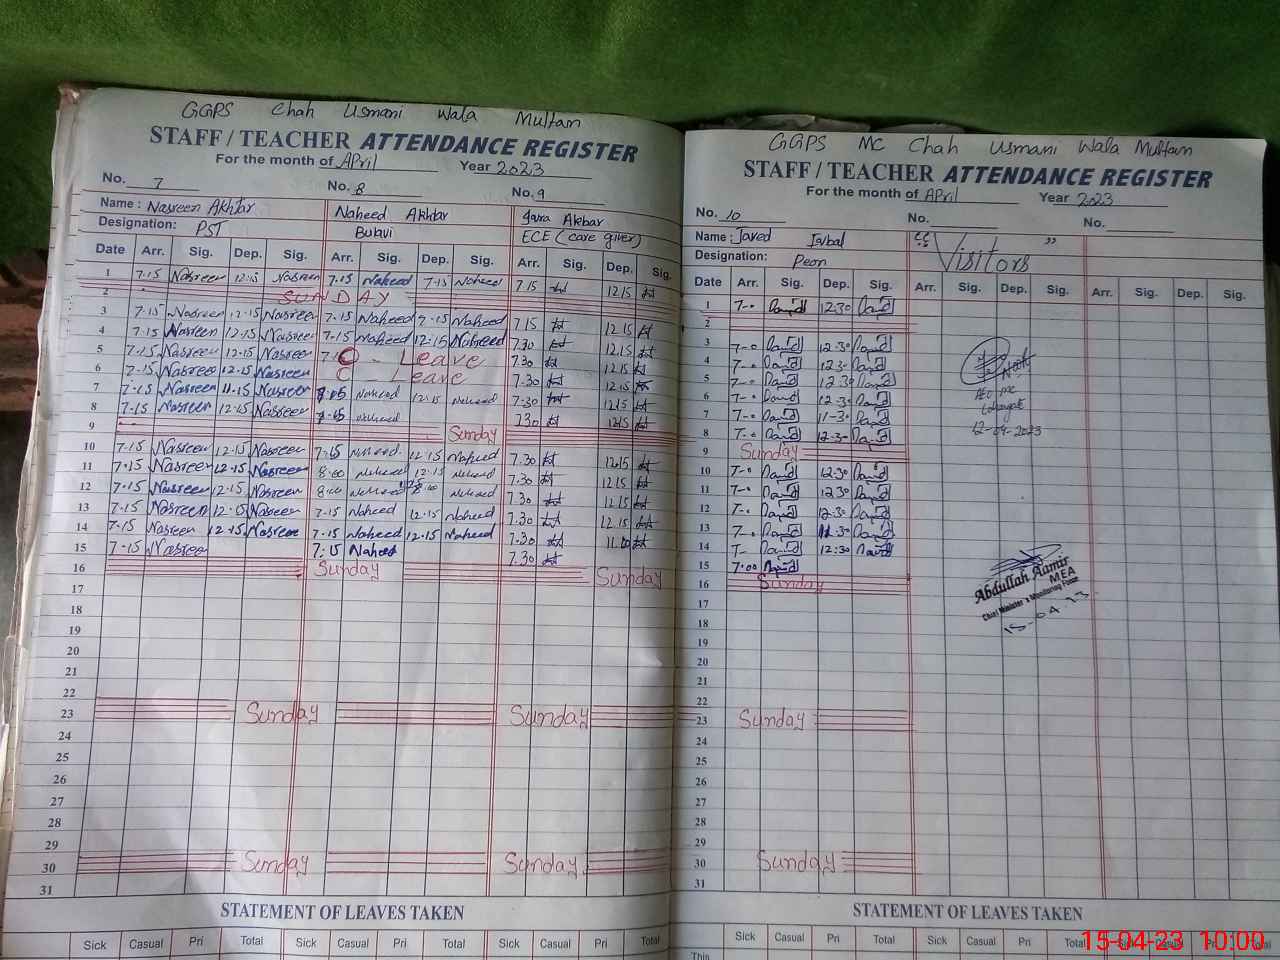 GGPS Chah Usmani Wala Multan
STAFF / TEACHER ATTENDANCE REGISTER
For the month of April Year 2023
No. 7 No. 8 No. 9
Name : Nasreen Akhtar Naheed Akhtar Akbar
Designation: PST ECE (care giver)
Date Arr. Sig. Dep. Sig. Arr. Sig. Dep. Sig. Arr. Sig. Dep. Sig.
1 7.15 Nasreen 12.15 Nasreen 7.15 Naheed 7.15 Naheed 7.15 12.15
2 SUNDAY
3 7.15 Nasreen 12.15 Nasreen 7.15 Naheed 7.15 Naheed 7.15 12.15
4 7.15 Nasreen 12.15 Nasreen 7.15 Naheed 12.15 Naheed 7.30 12.15
5 7.15 Nasreen 12.15 Nasreen Leave 7.30 12.15
6 7.15 Nasreen 12.15 Nasreen Leave 7.30 12.15
7 7.15 Nasreen 11.15 Nasreen Naheed 12.15 Naheed 7.30 12.15
8 7.15 Nasreen 12.15 Nasreen Naheed 7.30 12.15
9 Sunday
10 7.15 Nasreen 12.15 Nasreen 7.15 Naheed 12.15 Naheed 7.30 12.15
11 7.15 Nasreen 12.15 Nasreen 8.00 Naheed 12.15 Naheed 7.30 12.15
12 7.15 Nasreen 12.15 Nasreen 8.00 Naheed Naheed 7.30 12.15
13 7.15 Nasreen 12.15 Nasreen 7.15 Naheed 12.15 Naheed 7.30 12.15
14 7.15 Nasreen 12.15 Nasreen 7.15 Naheed 12.15 Naheed 7.30
15 7.15 Nasreen 7:15 Naheed 7.30
16 Sunday Sunday
17
18
19
20
21
22
23 Sunday Sunday
24
25
26
27
28
29
30 Sunday Sunday
31
STATEMENT OF LEAVES TAKEN
Sick Casual Pri Total Sick Casual Pri Total Sick Casual Pri Total
GGPS MC Chah Usmani Wala Multan
STAFF / TEACHER ATTENDANCE REGISTER
For the month of April Year 2023
No. 10 No. No.
Name : Javed Iqbal "Visitors"
Designation: Peon
Date Arr. Sig. Dep. Sig. Arr. Sig. Dep. Sig. Arr. Sig. Dep. Sig.
1 7-0 12:30
2
3 7-0 12:30
4 7-0 12:30
5 7-0 12:30
6 7-0 12:30
7 7-0 11-30
8 7-0 12:30
9 Sunday
10 7-0 12:30
11 7-0 12:30
12 7-0 12:30
13 7-0 11:30
14 7- 12:30
15 7:00
16 Sunday
17
18
19
20
21
22
23 Sunday
24
25
26
27
28
29
30 Sunday
31
12-04-2023
Abdullah Aamir
MEA
Chief Minister's Monitoring Force
15-04-23
STATEMENT OF LEAVES TAKEN
Sick Casual Pri Total Sick Casual Pri Total Sick Casual Pri Total
This
15-04-23 10:00